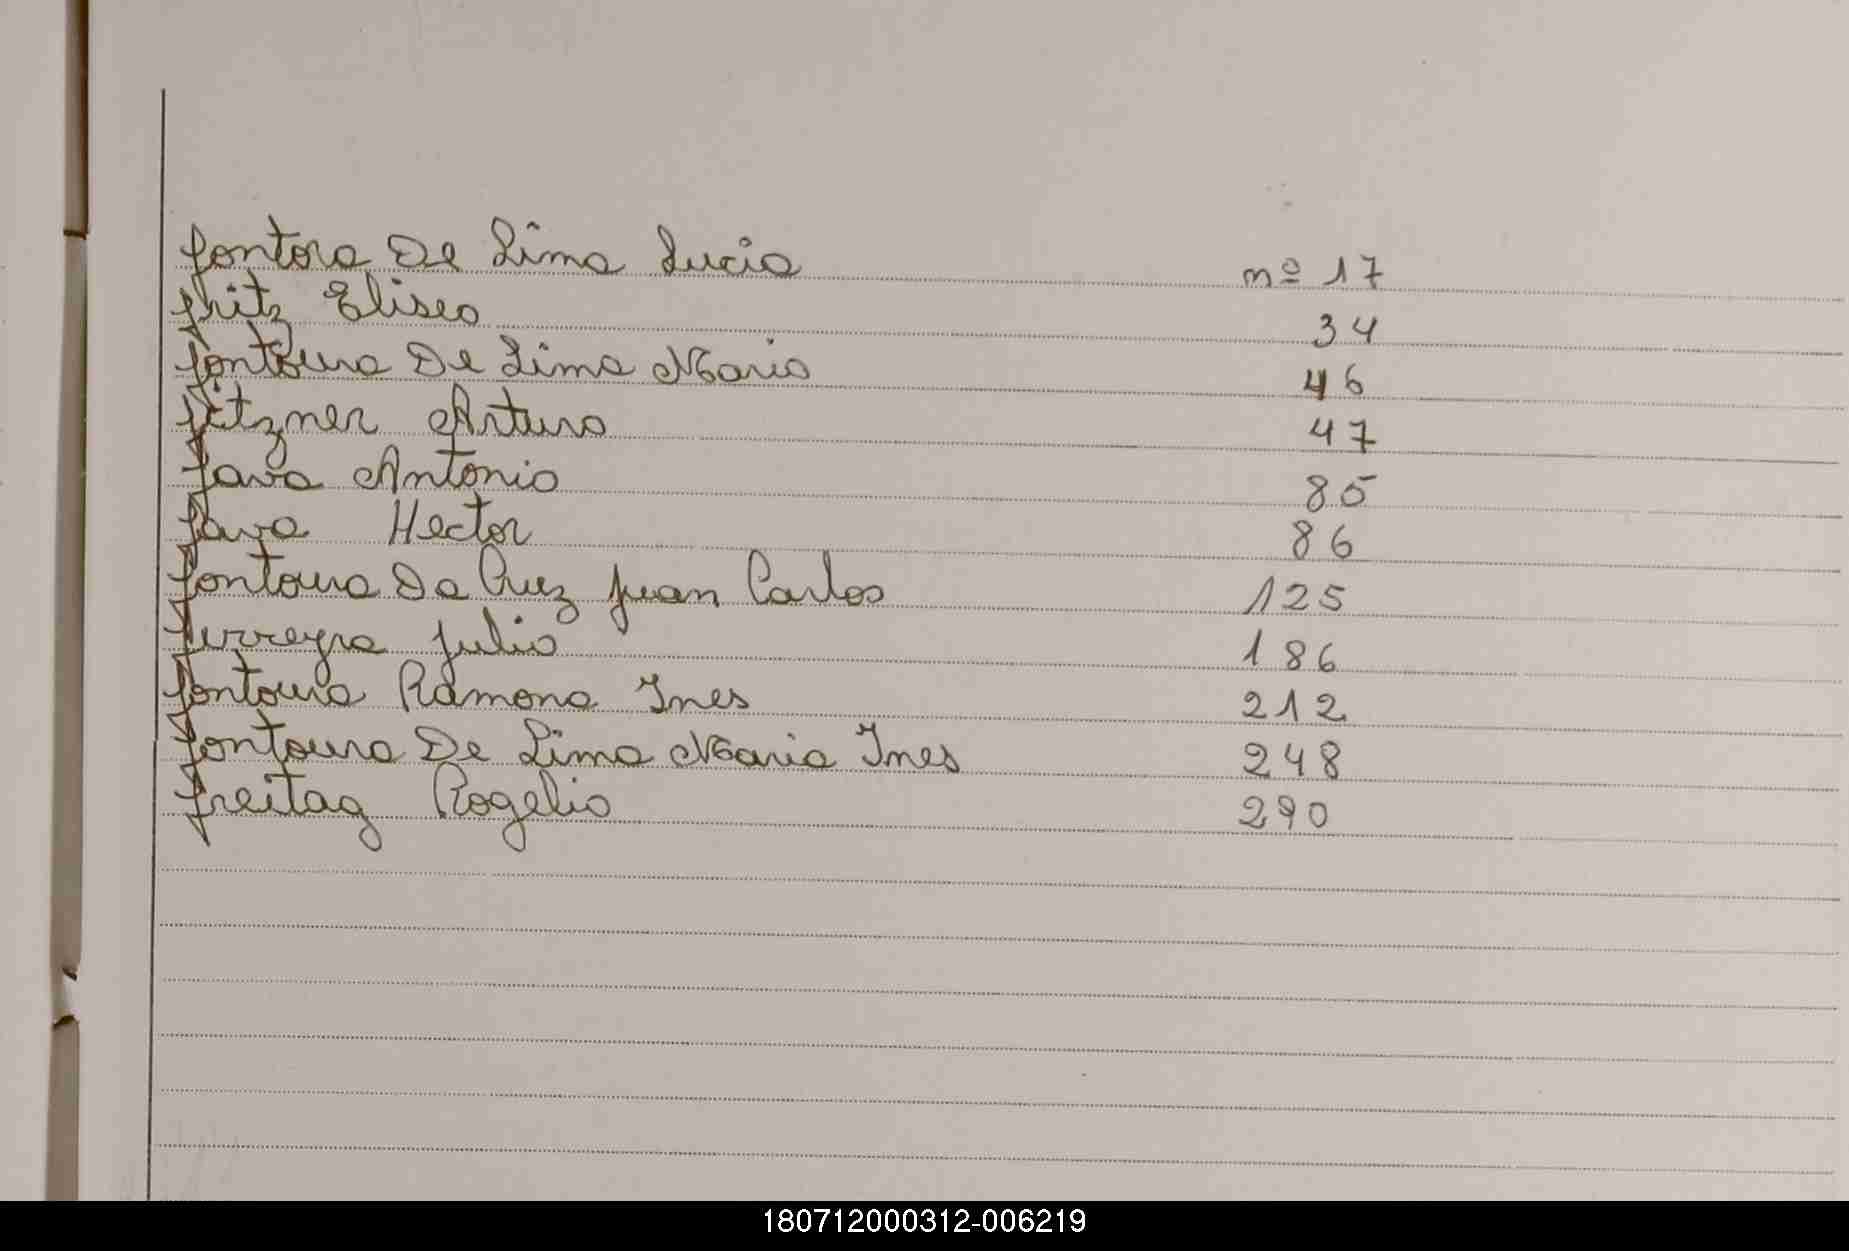 Fontora De Lima Lucia nº 17
Fritz Eliseo 34
Fontoura De Lima Maria 46
Fitzner Arturo 47
Fava Antonio 85
Fava Hector 86
Fontoura Da Cruz Juan Carlos 125
Ferreyra Julio 186
Fontoura Ramona Ines 212
Fontoura De Lima Maria Ines 248
Freitag Rogelio 290
180712000312-006219